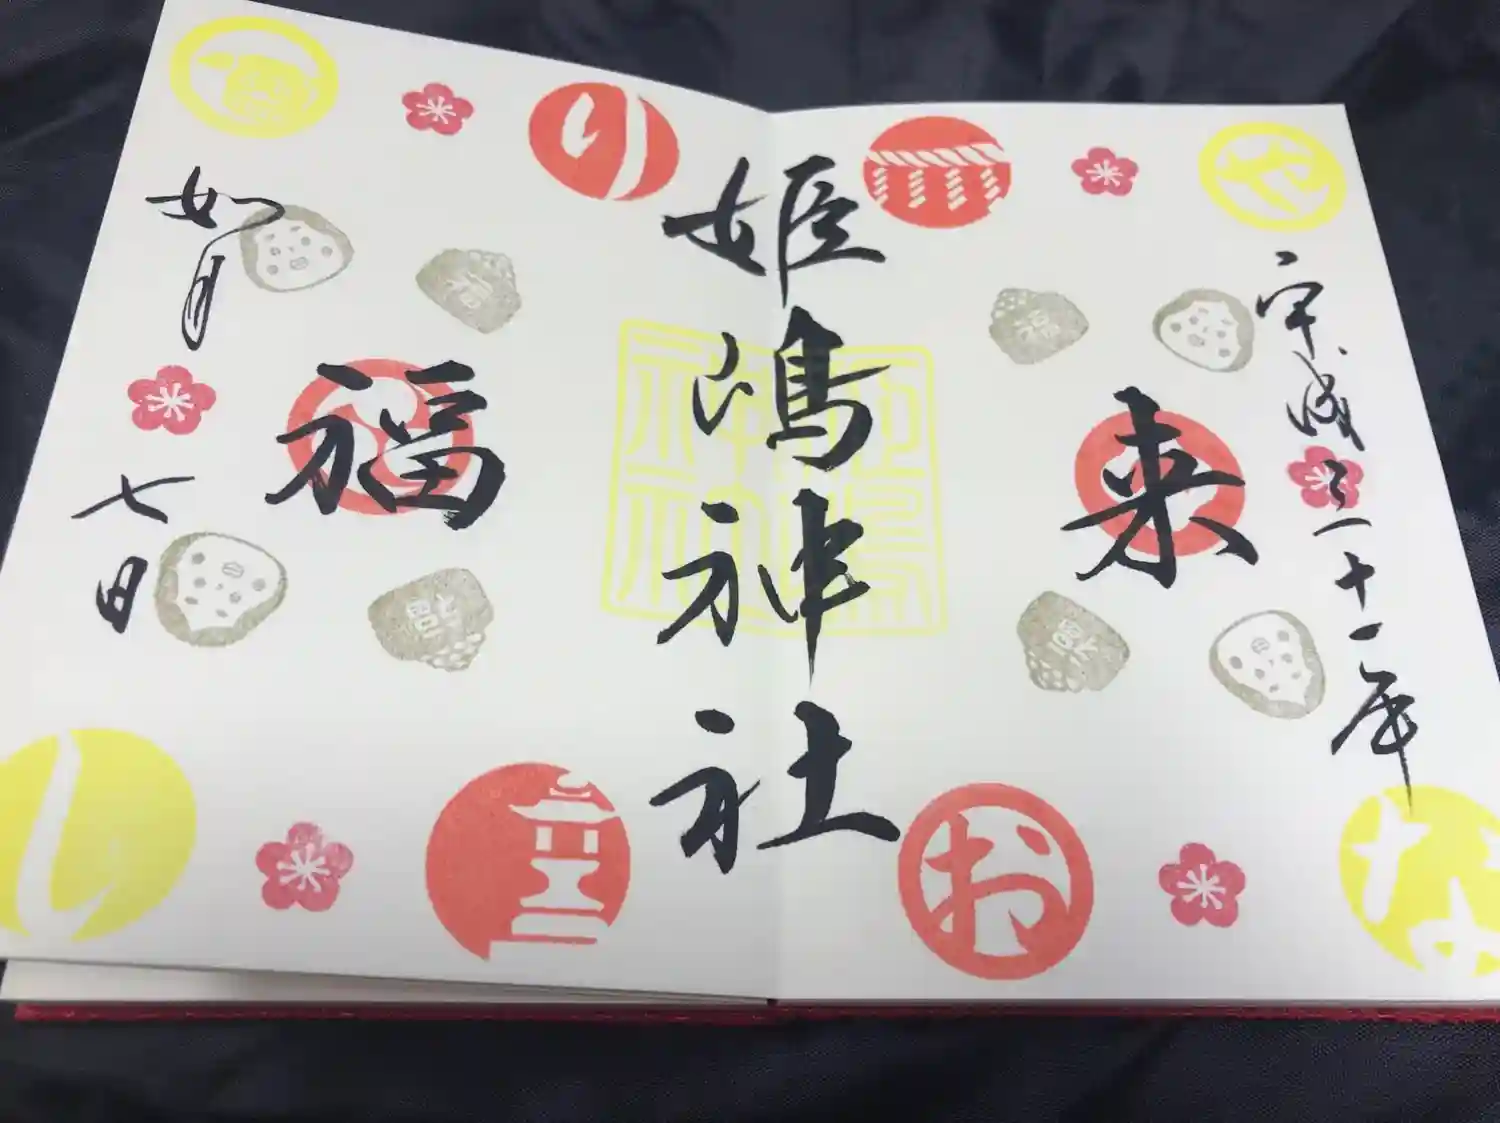 平成三十一年
来
姫嶋神社
福
如月
七日
や
り
な
お
し
福
福
福
福